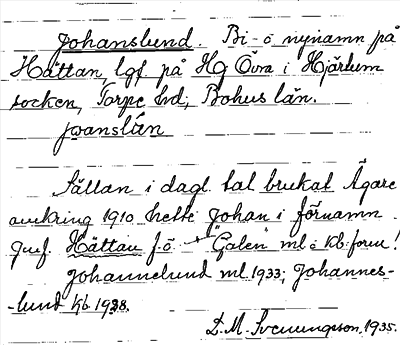 Johanslund. Bi- o nynamn på
Hättan, lgf på Hg Övra i Hjärtum
socken, Torpe hd, Bohus län.
joanslán
Sällan i dagl. tal brukat. Ägare
omkring 1910 hette Johan i förnamn.
Jmf. Hättan f.ö. "Galen" ml o kb. form!
Johannelund ml. 1933; Johannes-
-lund kb. 1928.
D.M. Svenungsson, 1935.